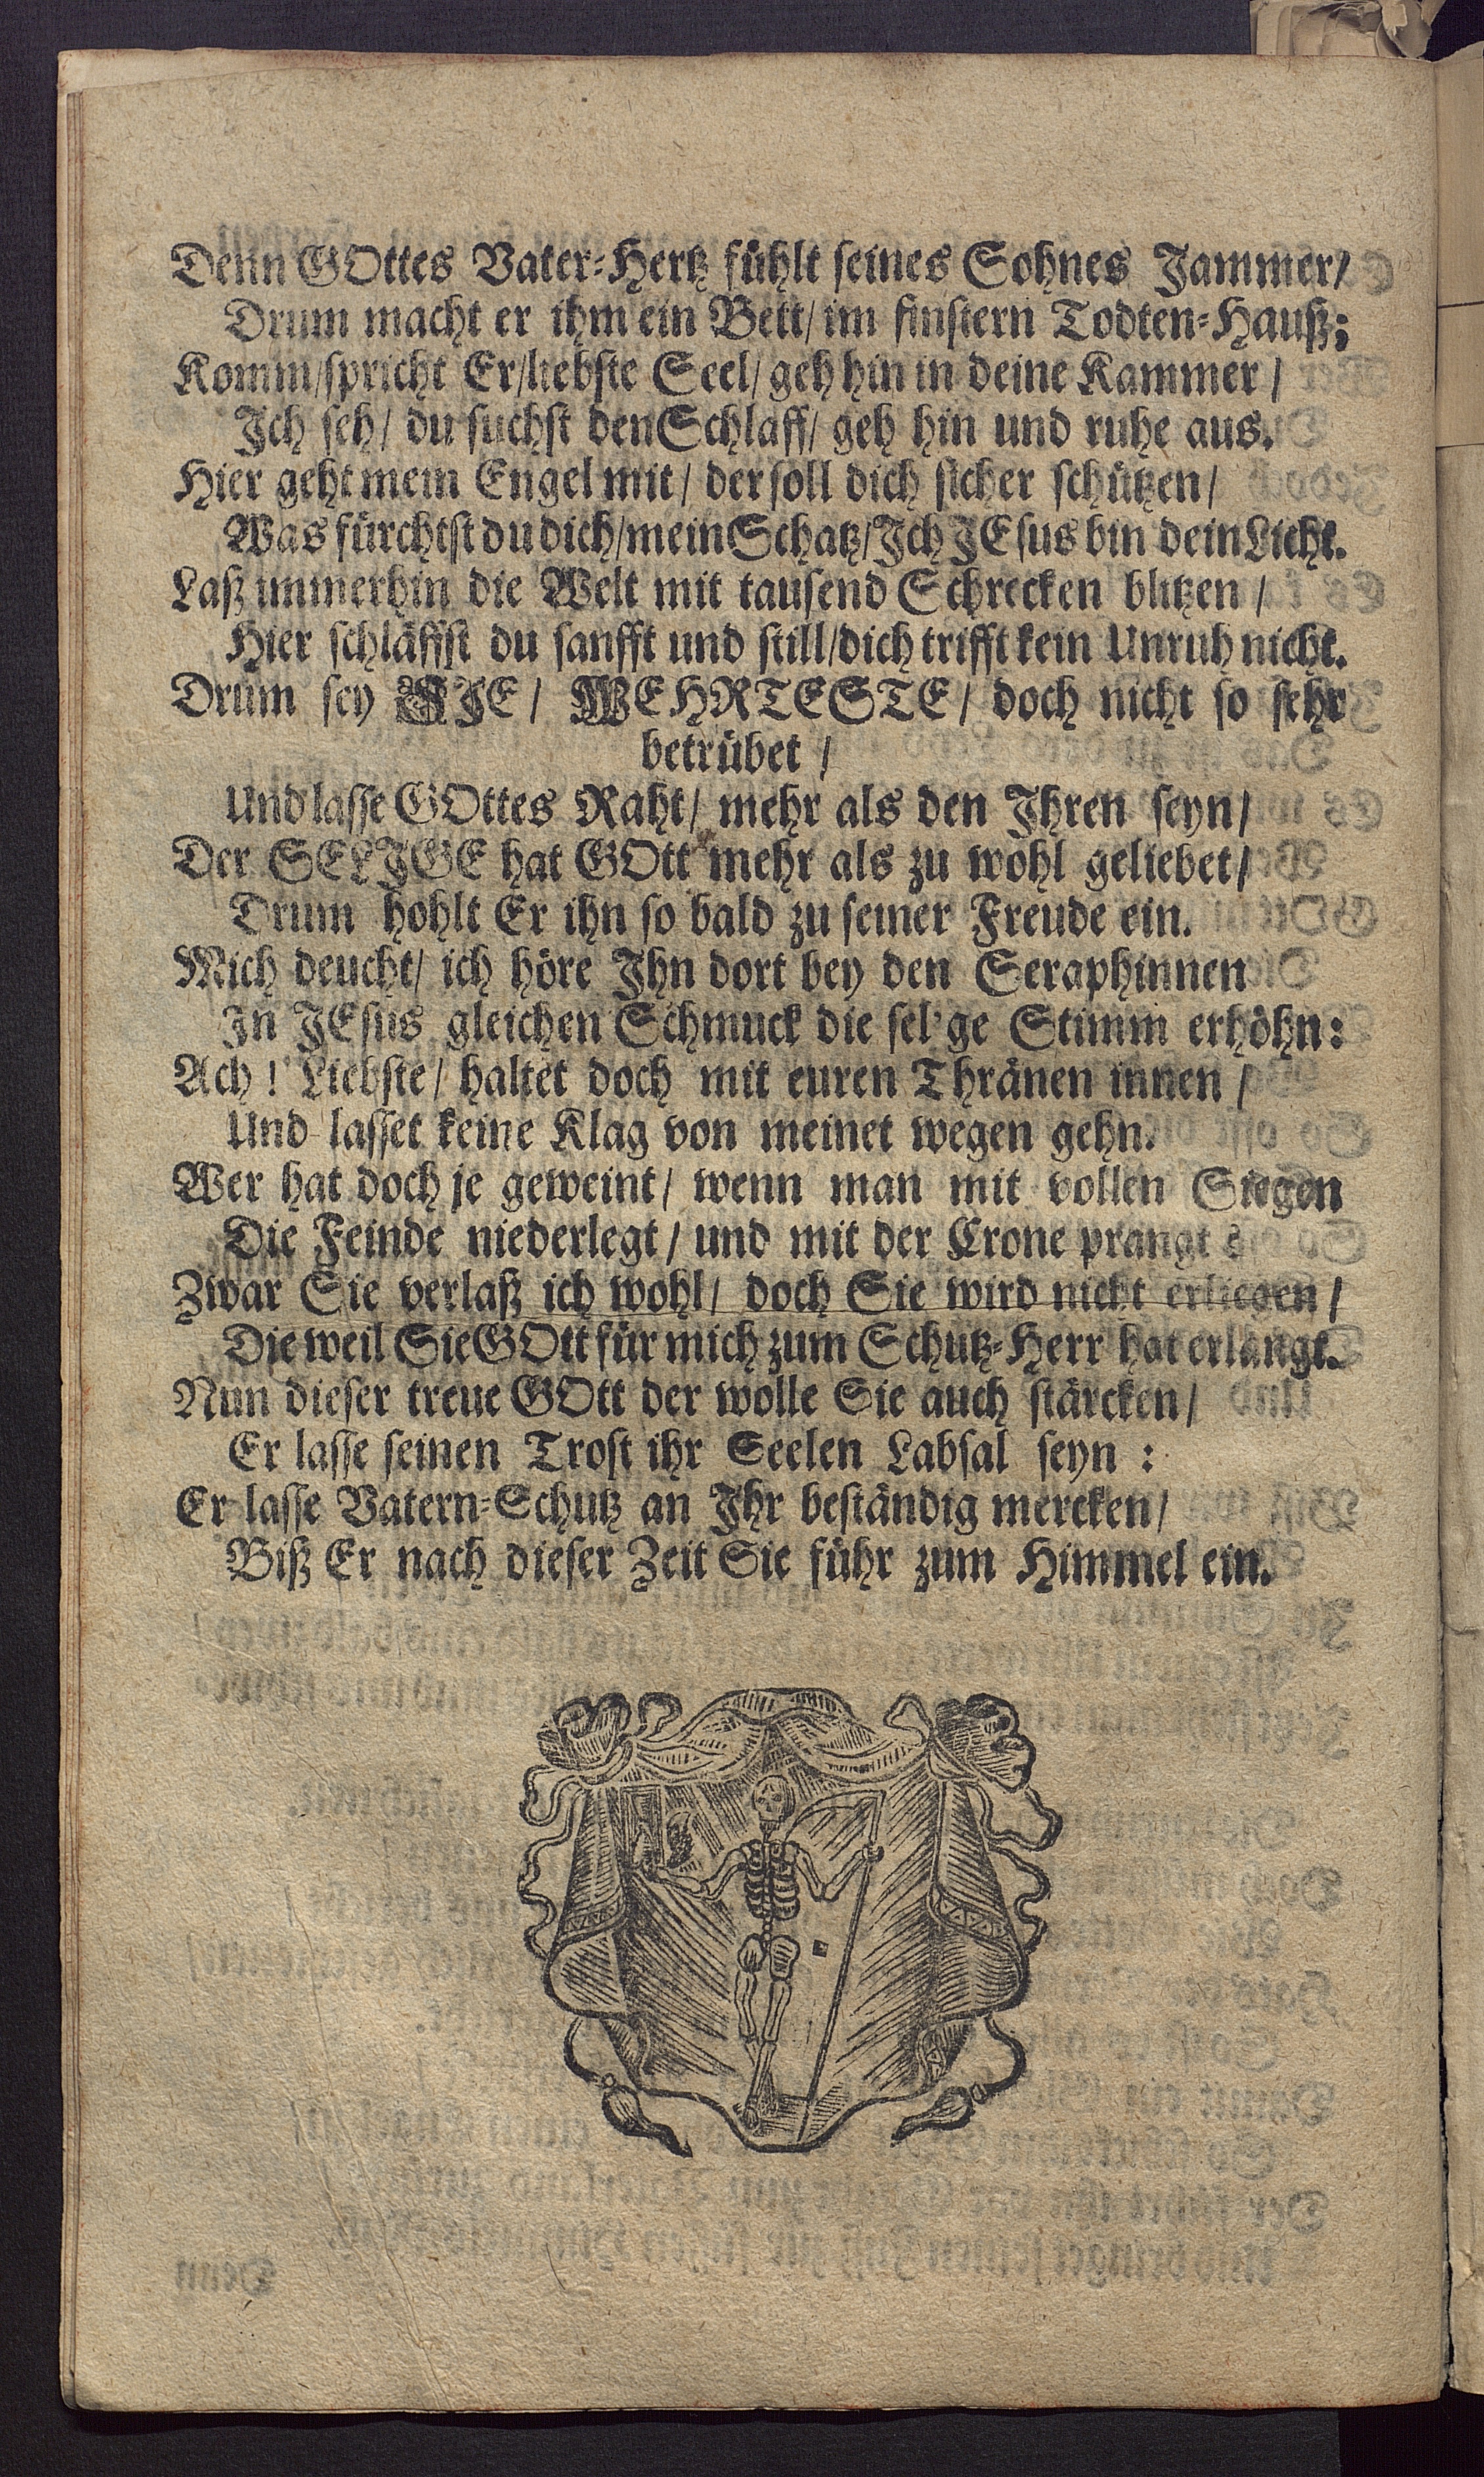 Denn GOttes Vater-Hertz fühlt seines Sohnes Jammer/
Drum macht er ihm ein Bett/ im finstern Todten-Hauß;
Komm/spricht Er/liebste Seel/ geh hin in deine Kammer/
Ich seh/ du suchst den Schlaff/ geh hin und ruhe aus.
Hier geht mein Engel mit/ der soll dich sicher schützen/
Was fürchtst du dich/mein Schatz/Ich JEsus bin dein Licht.
Laß immerhin die Welt mit tausend Schrecken blitzen/
Hier schläffst du sanfft und still/dich trifft kein Unruh nicht.
Drum sey SIE/ WEHRTESTE/ doch nicht so sehr
betrübet/
Und lasse GOttes Raht/ mehr als den Ihren seyn/
Der SELIGE hat GOtt mehr als zu wohl geliebet/
Drum hohlt Er ihn so bald zu seiner Freude ein.
Mich deucht/ ich höre Ihn dort bey den Seraphinnen
In JEsus gleichen Schmuck die sel'ge Stimm erhöhn:
Ach! Liebste/ haltet doch mit euren Thränen innen/
Und lasset keine Klag von meinet wegen gehn.
Wer hat doch je geweint/ wenn man mit vollen Siegen
Die Feinde niederlegt/ und mit der Crone prangt
Zwar Sie verlaß ich wohl/ doch Sie wird nicht erliegen/
Die weil Sie GOtt für mich zum Schutz-Herr hat erlangt.
Nun dieser treue GOtt der wolle Sie auch stärcken/
Er lasse seinen Trost ihr Seelen Labsal seyn:
Er lasse Vatern-Schutz an Ihr beständig mercken/
Biß Er nach dieser Zeit Sie führ zum Himmel ein.